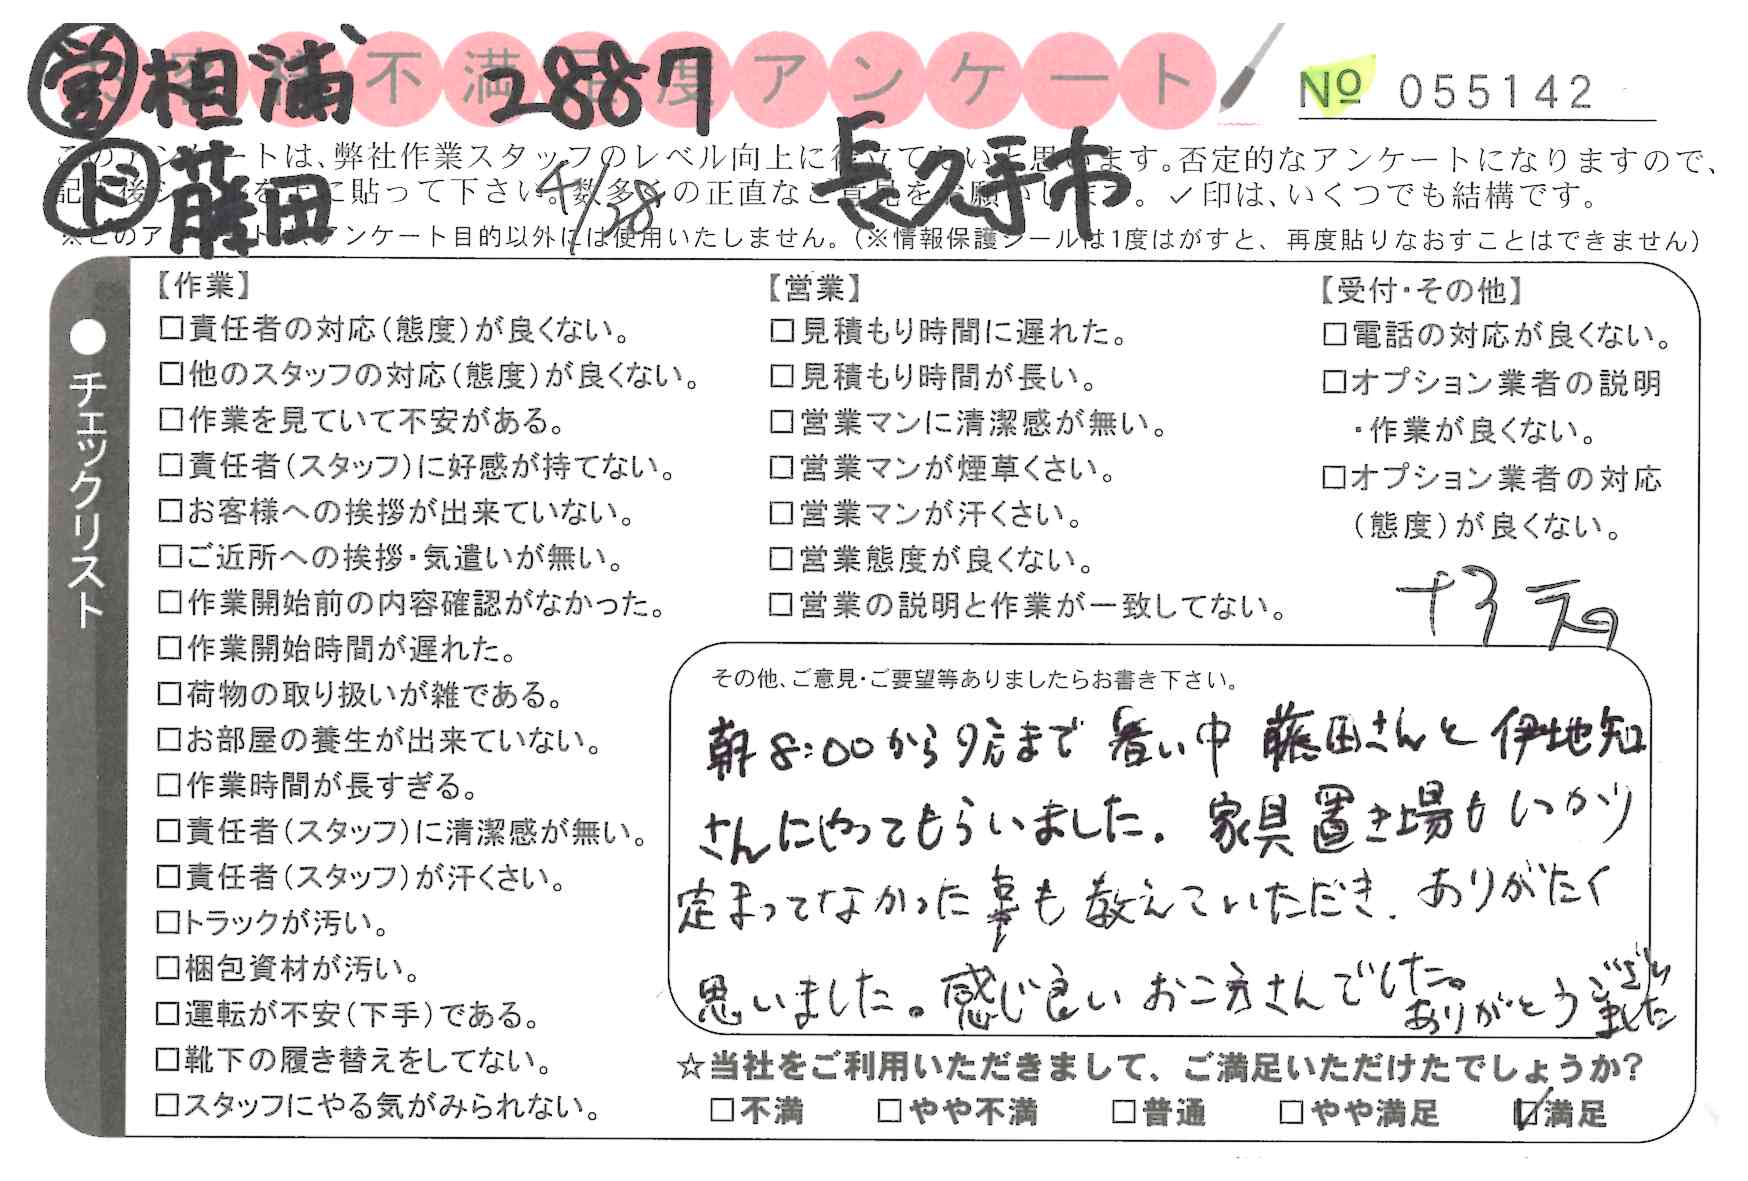 お客様不満足度アンケート
営 相浦 2887
№ 055142
ド 藤田 4/28 長久手市
このアンケートは、弊社作業スタッフのレベル向上に役立てたいと思います。否定的なアンケートになりますので、
記入後シールを上に貼って下さい。数多くの正直なご意見をお願いします。✓印は、いくつでも結構です。
※このアンケートはアンケート目的以外には使用いたしません。(※情報保護シールは1度はがすと、再度貼りなおすことはできません)
●チェックリスト
【作業】
□責任者の対応(態度)が良くない。
□他のスタッフの対応(態度)が良くない。
□作業を見ていて不安がある。
□責任者(スタッフ)に好感が持てない。
□お客様への挨拶が出来ていない。
□ご近所への挨拶・気遣いが無い。
□作業開始前の内容確認がなかった。
□作業開始時間が遅れた。
□荷物の取り扱いが雑である。
□お部屋の養生が出来ていない。
□作業時間が長すぎる。
□責任者(スタッフ)に清潔感が無い。
□責任者(スタッフ)が汗くさい。
□トラックが汚い。
□梱包資材が汚い。
□運転が不安(下手)である。
□靴下の履き替えをしてない。
□スタッフにやる気がみられない。
【営業】
□見積もり時間に遅れた。
□見積もり時間が長い。
□営業マンに清潔感が無い。
□営業マンが煙草くさい。
□営業マンが汗くさい。
□営業態度が良くない。
□営業の説明と作業が一致してない。
【受付・その他】
□電話の対応が良くない。
□オプション業者の説明
・作業が良くない。
□オプション業者の対応
(態度)が良くない。
その他、ご意見・ご要望等ありましたらお書き下さい。
朝8:00から夕方まで 暑い中 藤田さんと 伊地知
さんにやってもらいました. 家具置き場もしっかり
定まってなかった事も教えていただき. ありがたく
思いました。感じ良い お二方さんでした。
ありがとうございました
☆当社をご利用いただきまして、ご満足いただけたでしょうか?
□不満 □やや不満 □普通 □やや満足 ☑満足